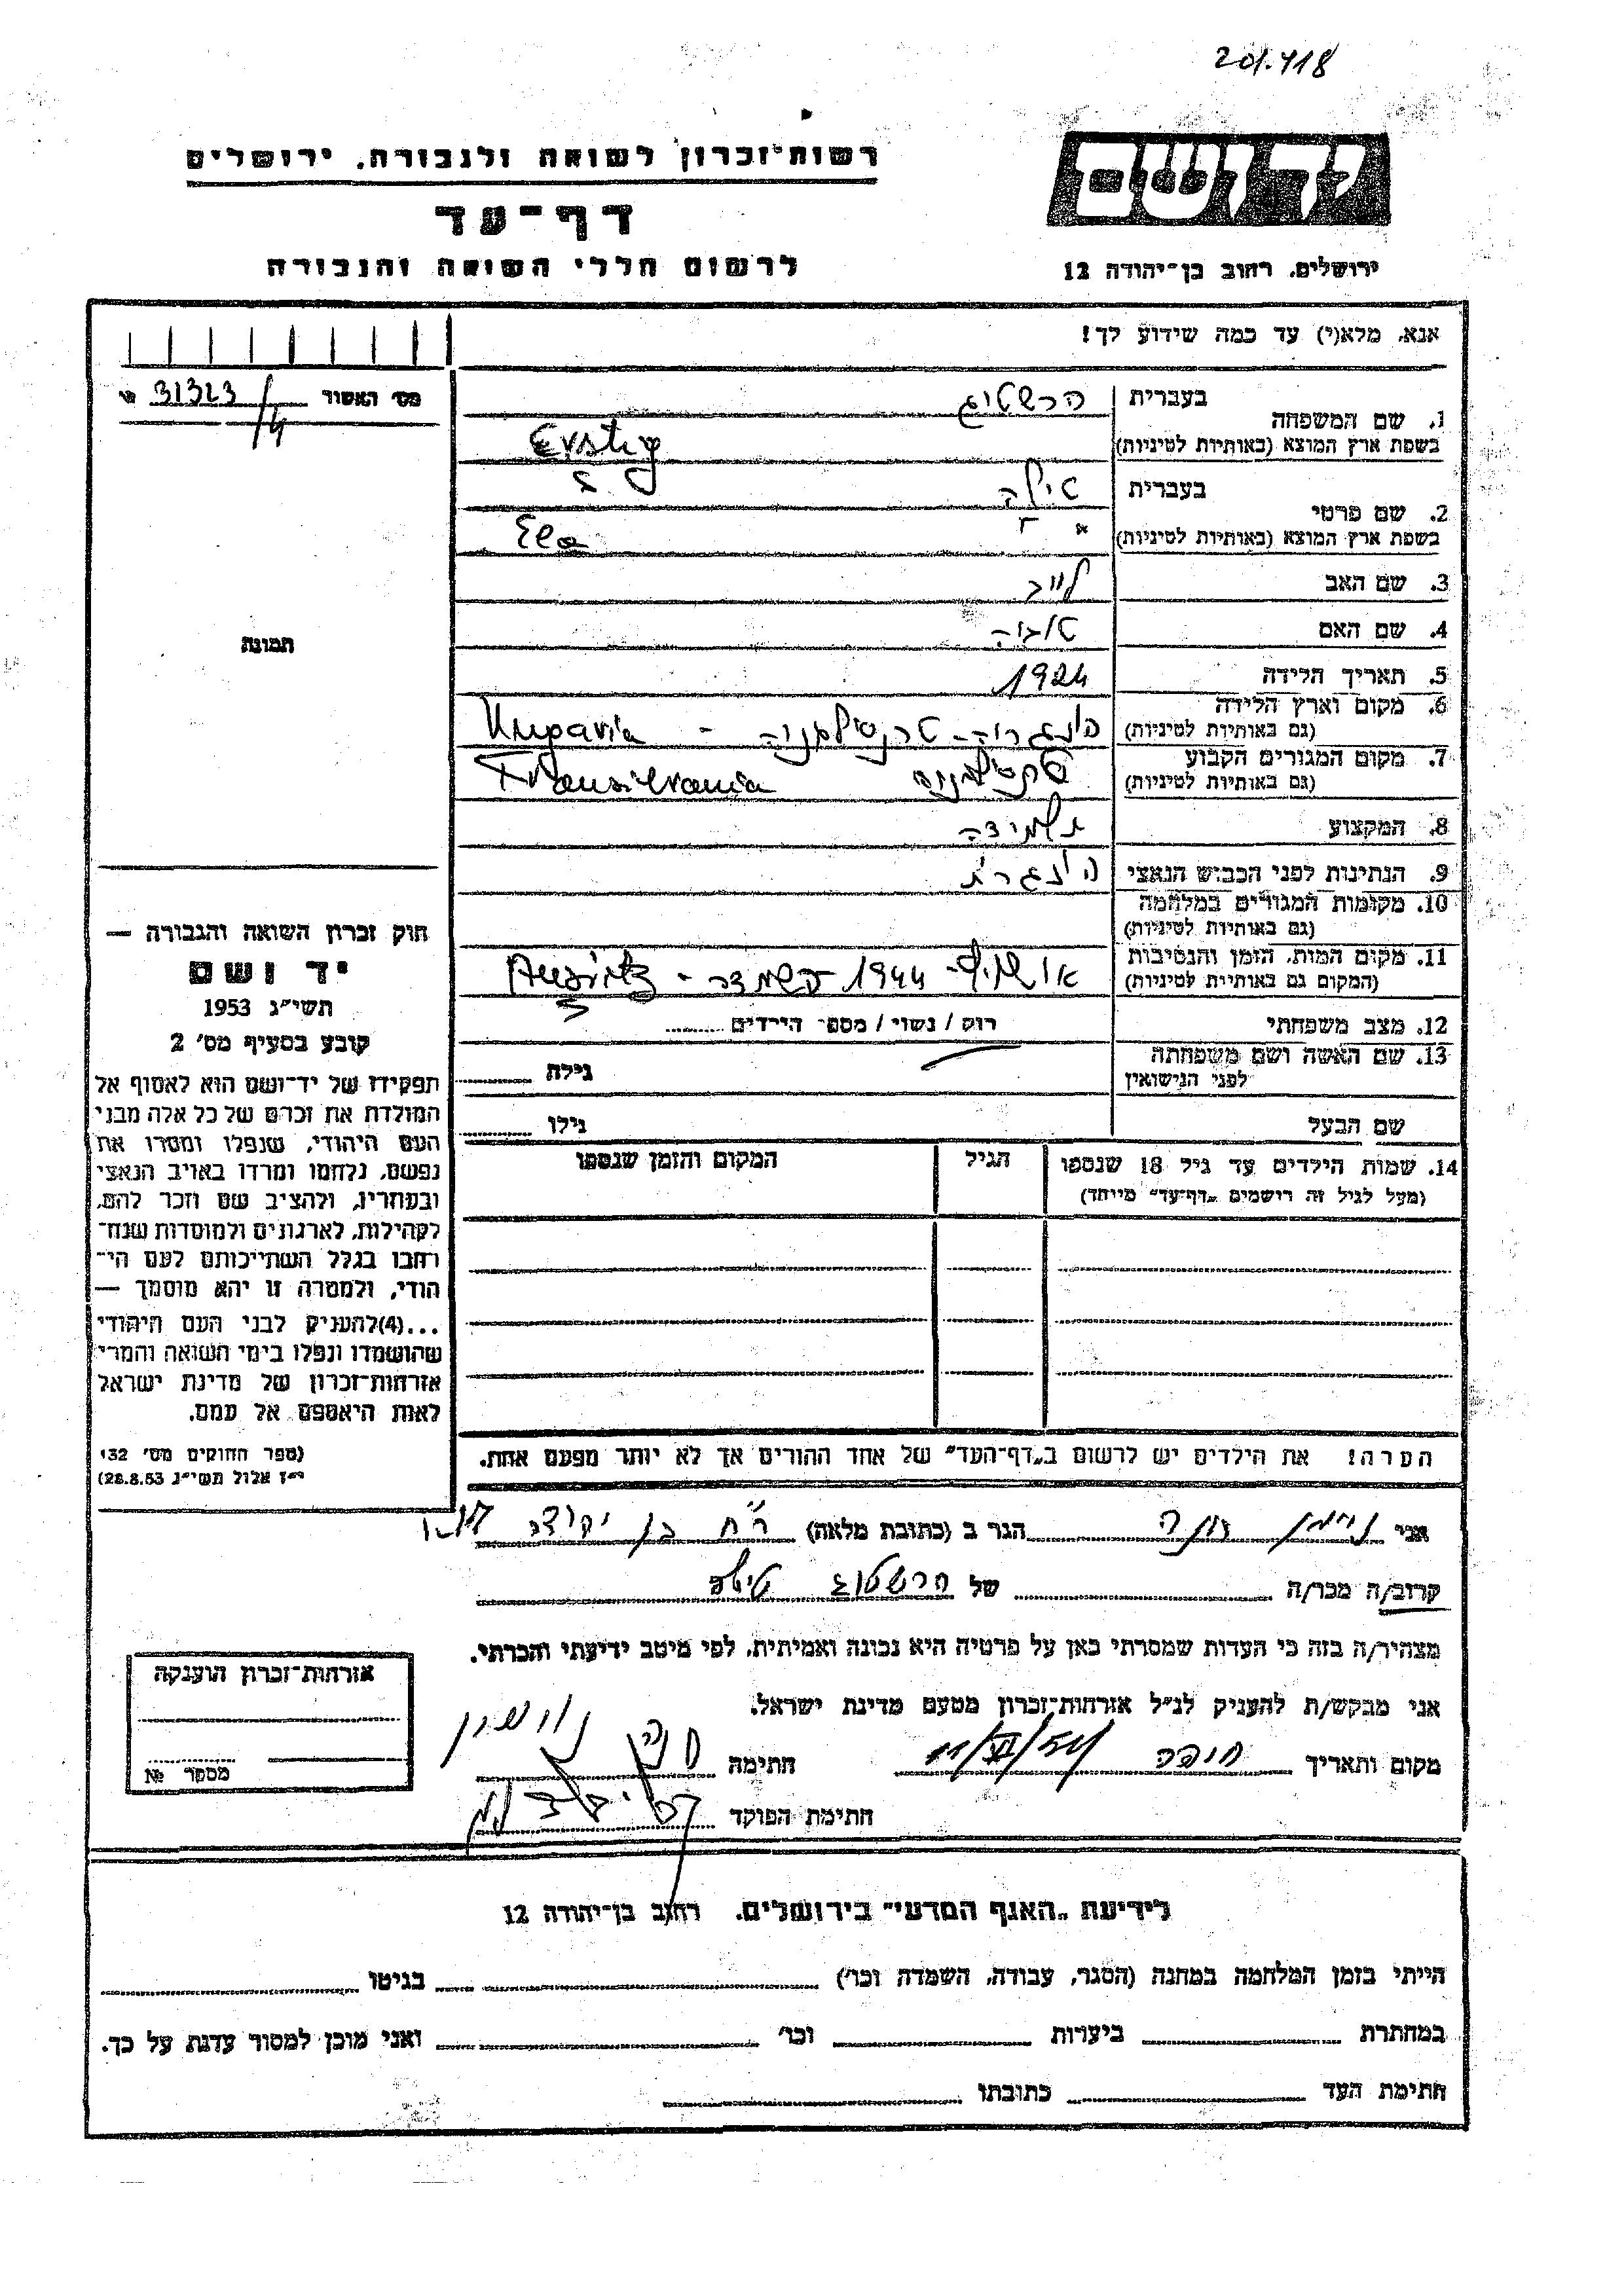 201.418
יד ושם
רשות־זכרון לשואה ולגבורה, ירושלים
דף־עד
לרשום חללי השואה והגבורה
ירושלים, רחוב בן־יהודה 12
אנא, מלא(י) עד כמה שידוע לך!
מס' האשור 31323/4
1. שם המשפחה
בעברית הרשטיג
בשפת ארץ המוצא (באותיות לטיניות) Erstig
2. שם פרטי
בעברית טילה
בשפת ארץ המוצא (באותיות לטיניות)
3. שם האב לייב
4. שם האם טובה
5. תאריך הלידה 1924
6. מקום וארץ הלידה
(גם באותיות לטיניות) הונגריה - טרנסילבניה -
7. מקום המגורים הקבוע
(גם באותיות לטיניות) Transilvania
8. המקצוע תלמידה
9. הנתינות לפני הכבוש הנאצי הונגרית
10. מקומות המגורים במלחמה
(גם באותיות לטיניות)
11. מקום המות, הזמן והנסיבות
(המקום גם באותיות לטיניות) 1944 -
12. מצב משפחתי רווק / נשוי / מספר הילדים
13. שם האשה ושם משפחתה
לפני הנישואין גילה
שם הבעל גילו
14. שמות הילדים עד גיל 18 שנספו
(מעל לגיל זה רושמים „דף־עד" מיוחד)
הגיל
המקום והזמן שנספו
תמונה
חוק זכרון השואה והגבורה —
יד ושם
תשי"ג 1953
קובע בסעיף מס' 2
תפקידו של יד־ושם הוא לאסוף אל
המולדת את זכרם של כל אלה מבני
העם היהודי, שנפלו ומסרו את
נפשם, נלחמו ומרדו באויב הנאצי
ובעוזריו, ולהציב שם וזכר להם,
לקהילות, לארגונים ולמוסדות שנח־
רבו בגלל השתייכותם לעם הי־
הודי, ולמטרה זו יהא מוסמך —
...(4)להעניק לבני העם היהודי
שהושמדו ונפלו בימי השואה והמרי
אזרחות־זכרון של מדינת ישראל
לאות היאספם אל עמם.
(ספר החוקים מס' 132
י"ז אלול תשי"ג 28.8.53)
הערה! את הילדים יש לרשום ב„דף־העד" של אחד ההורים אך לא יותר מפעם אחת.
אני הגר ב (כתובת מלאה) רח בן יהודה
קרוב/ה מכר/ה של הרשטיג טילה
מצהיר/ה בזה כי העדות שמסרתי כאן על פרטיה היא נכונה ואמיתית, לפי מיטב ידיעתי והכרתי.
אני מבקש/ת להעניק לנ"ל אזרחות־זכרון מטעם מדינת ישראל.
מקום ותאריך חיפה חתימה
חתימת הפוקד
אזרחות־זכרון הוענקה
מספר №
לידיעת „האגף המדעי" בירושלים, רחוב בן־יהודה 12
הייתי בזמן המלחמה במחנה (הסגר, עבודה, השמדה וכו') בגיטו
במחתרת ביערות וכו' ואני מוכן למסור עדות על כך.
חתימת העד כתובתו